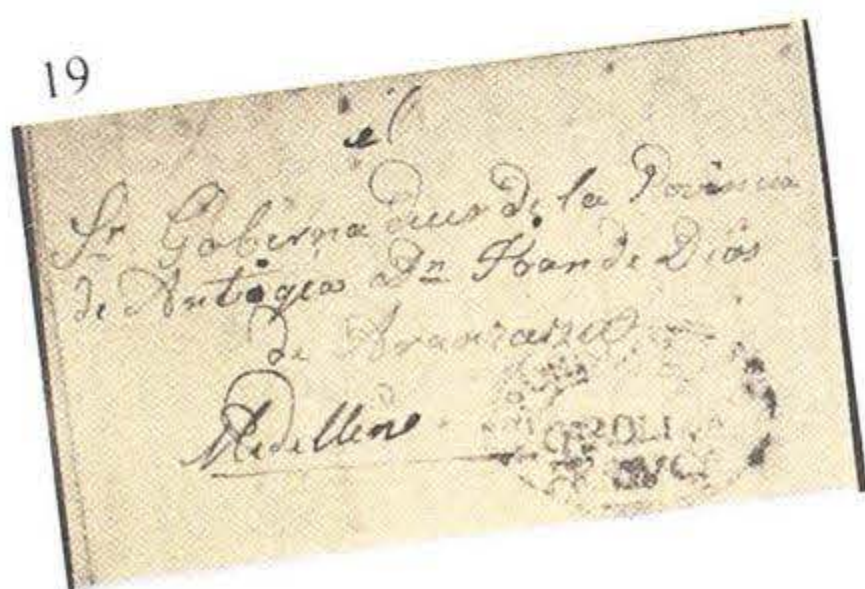 19
el
Sr. Gobernador de la Provincia
de Antioqia Dn Juan de Dios
de Aranzazu
Medellin
CAROLINA
FRANCA